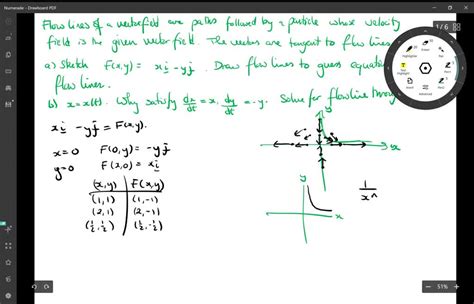 Numerade - Drawboard PDF
Flow lines of a vector field are paths followed by a particle whose velocity
field is the given vector field. The vectors are tangent to flow lines
a) Sketch F(x,y) = xi - yj. Draw flow lines to guess equation
flow lines.
b) x = x(t). Why satisfy dx/dt = x, dy/dt = -y. Solve for flow line through
xi - yj = F(x,y).
x=0 F(0,y) = -yj
y=0 F(x,0) = xi
(x,y) F(x,y)
(1,1) (1,-1)
(2,1) (2,-1)
(½,½) (½,-½)
y
x
y
x
1/xⁿ
1/6
51%